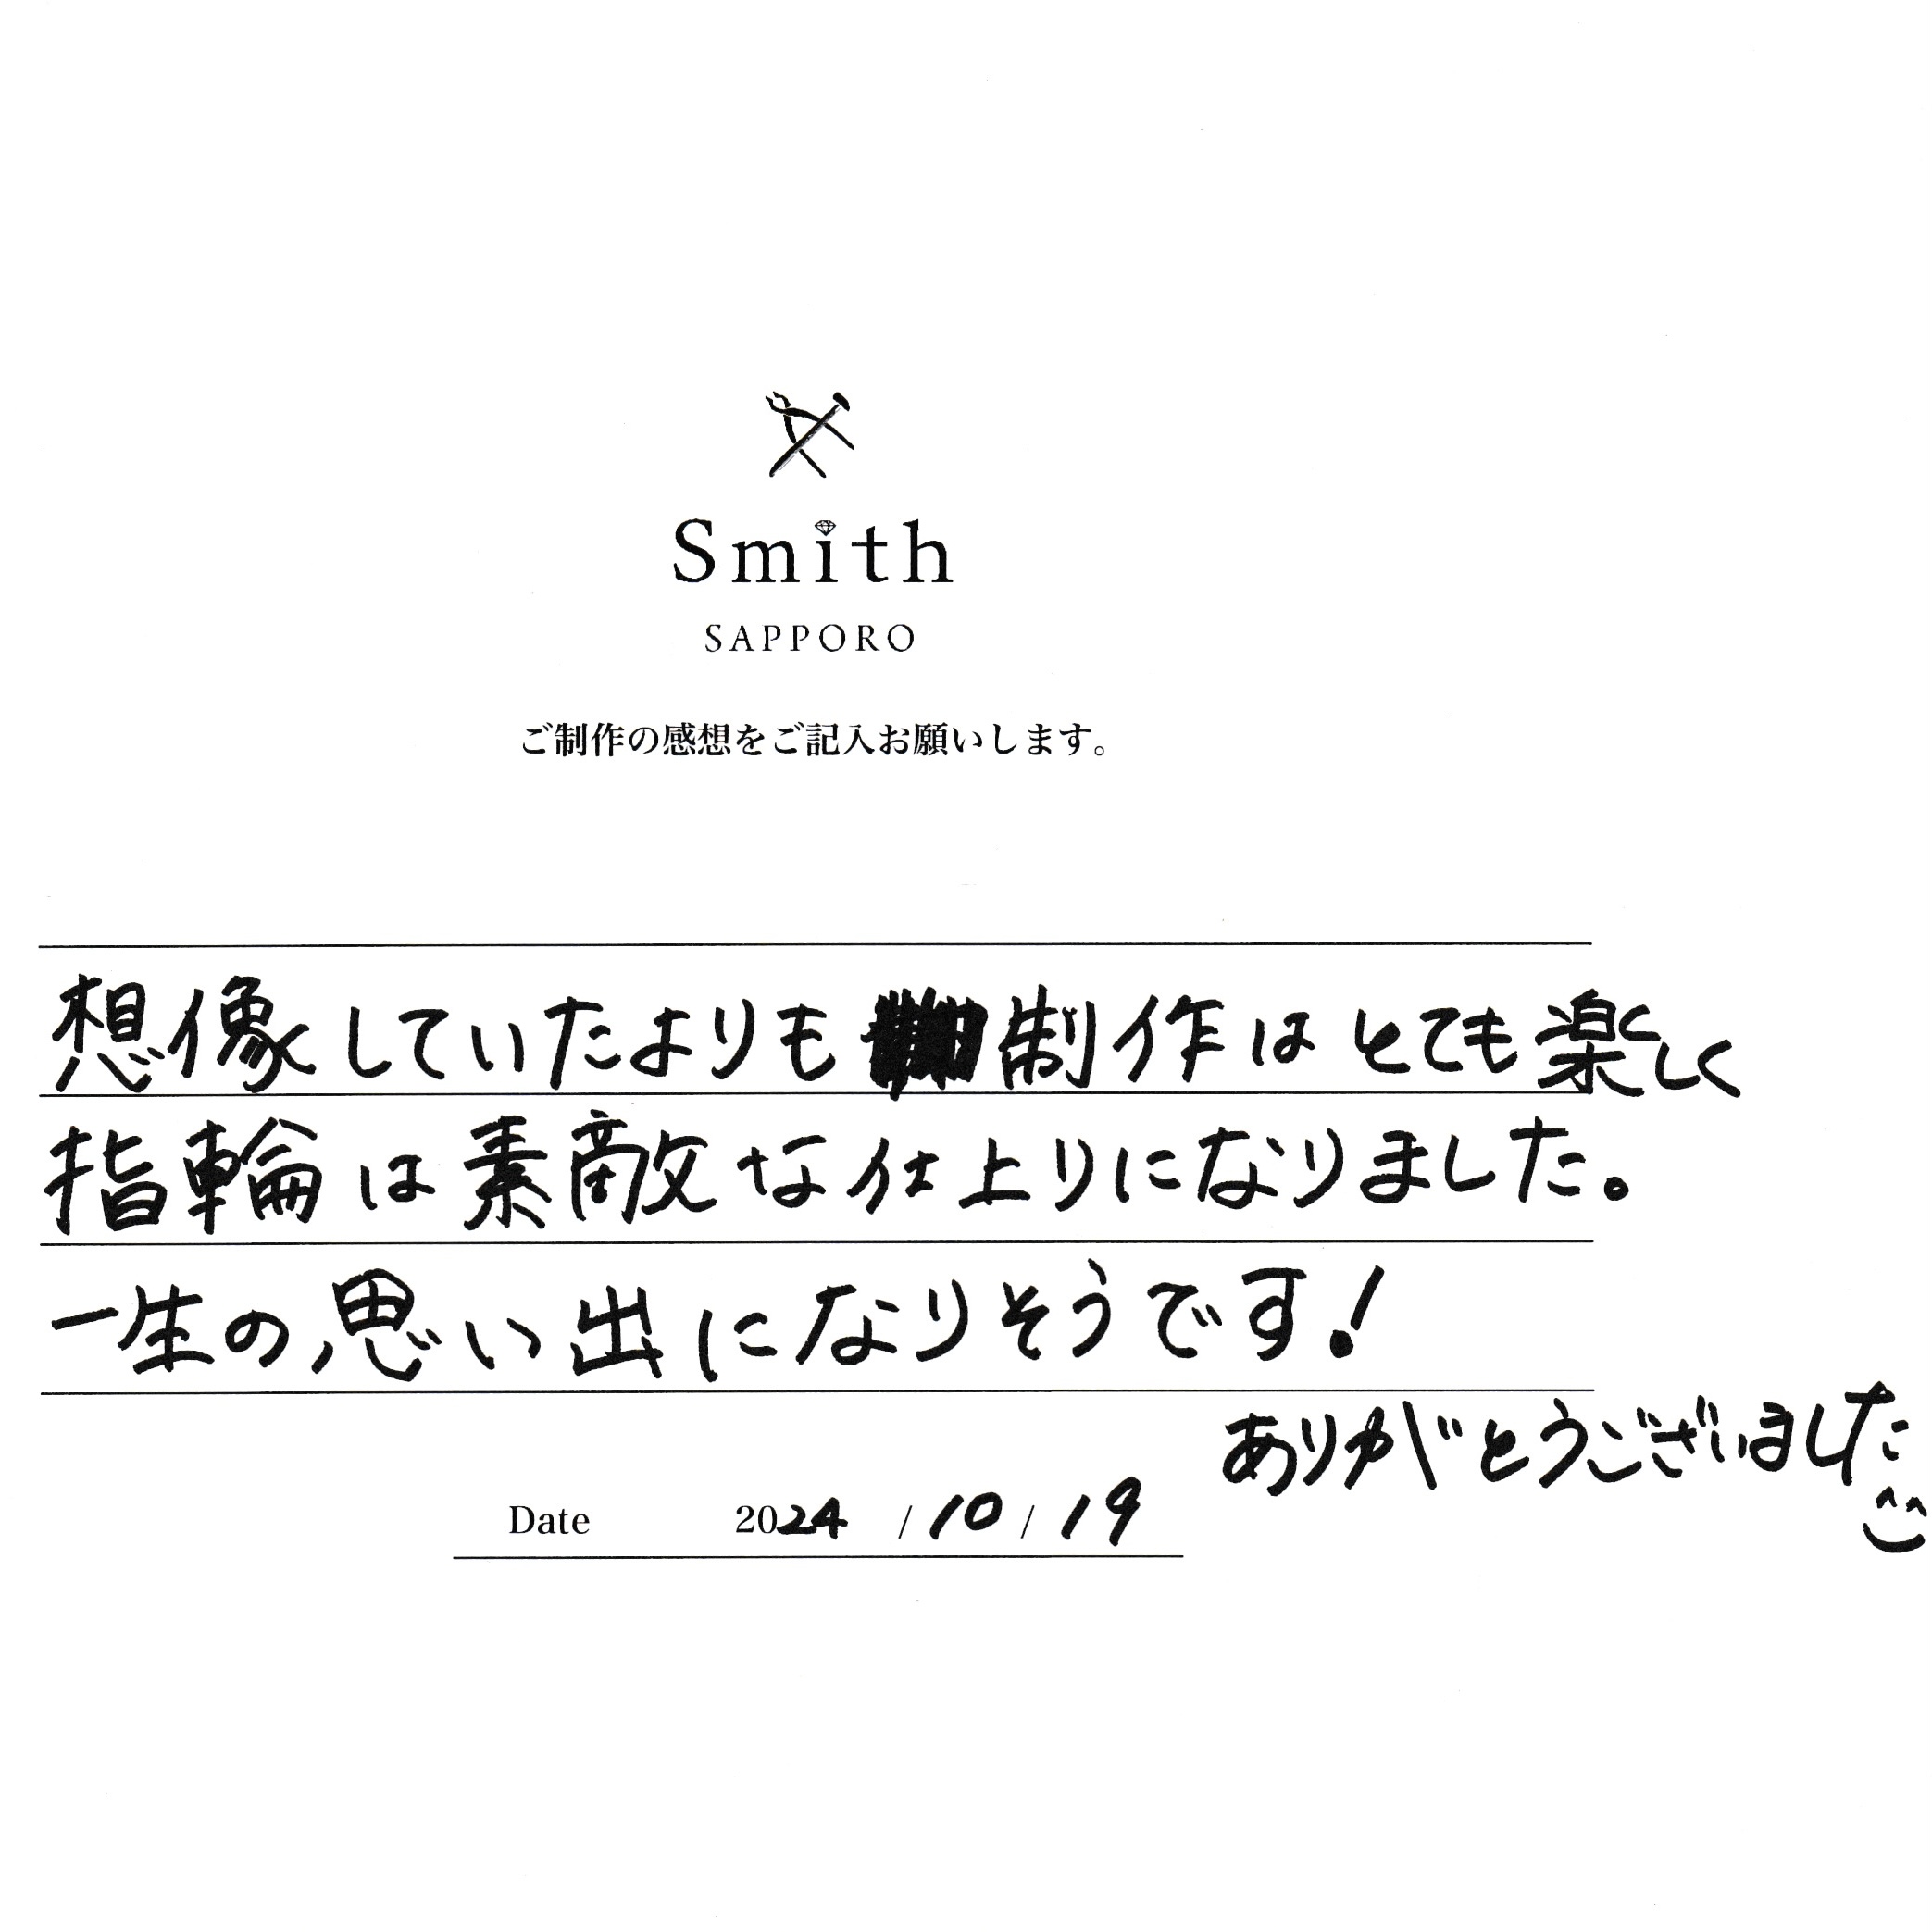 Smith
SAPPORO
ご制作の感想をご記入お願いします。
想像していたよりも制作はとても楽しく
指輪は素敵な仕上りになりました。
一生の思い出になりそうです!
ありがとうございました
Date 2024 / 10 / 19